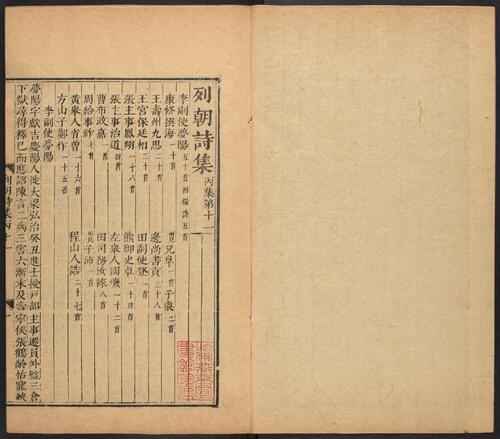 列朝詩集 丙集第十一
李副使夢陽 五十首
康修撰海 一十首
王壽州九思 二十首 邊尚書貢 三十八首
王宮保廷相 三十首 田副使登 一首
張主事鳳翔 一十八首 熊御史卓 一十四首
張主事治道 四首 左舉人國璣 一十二首
曹布政嘉 一首 田司務汝𣘼 八首
周給事祚 七首
黃舉人省曾 一十六首 程山人誥 二十七首
方山子鄭作 一十五首
李副使夢陽
夢陽字獻吉慶陽人徙大梁弘治癸丑進士授戶部主事遷員外監三倉
下獄尋得釋已而應詔陳言二病三害六漸末及壽寧侯張鶴齡怙寵殃
列朝詩集丙十一